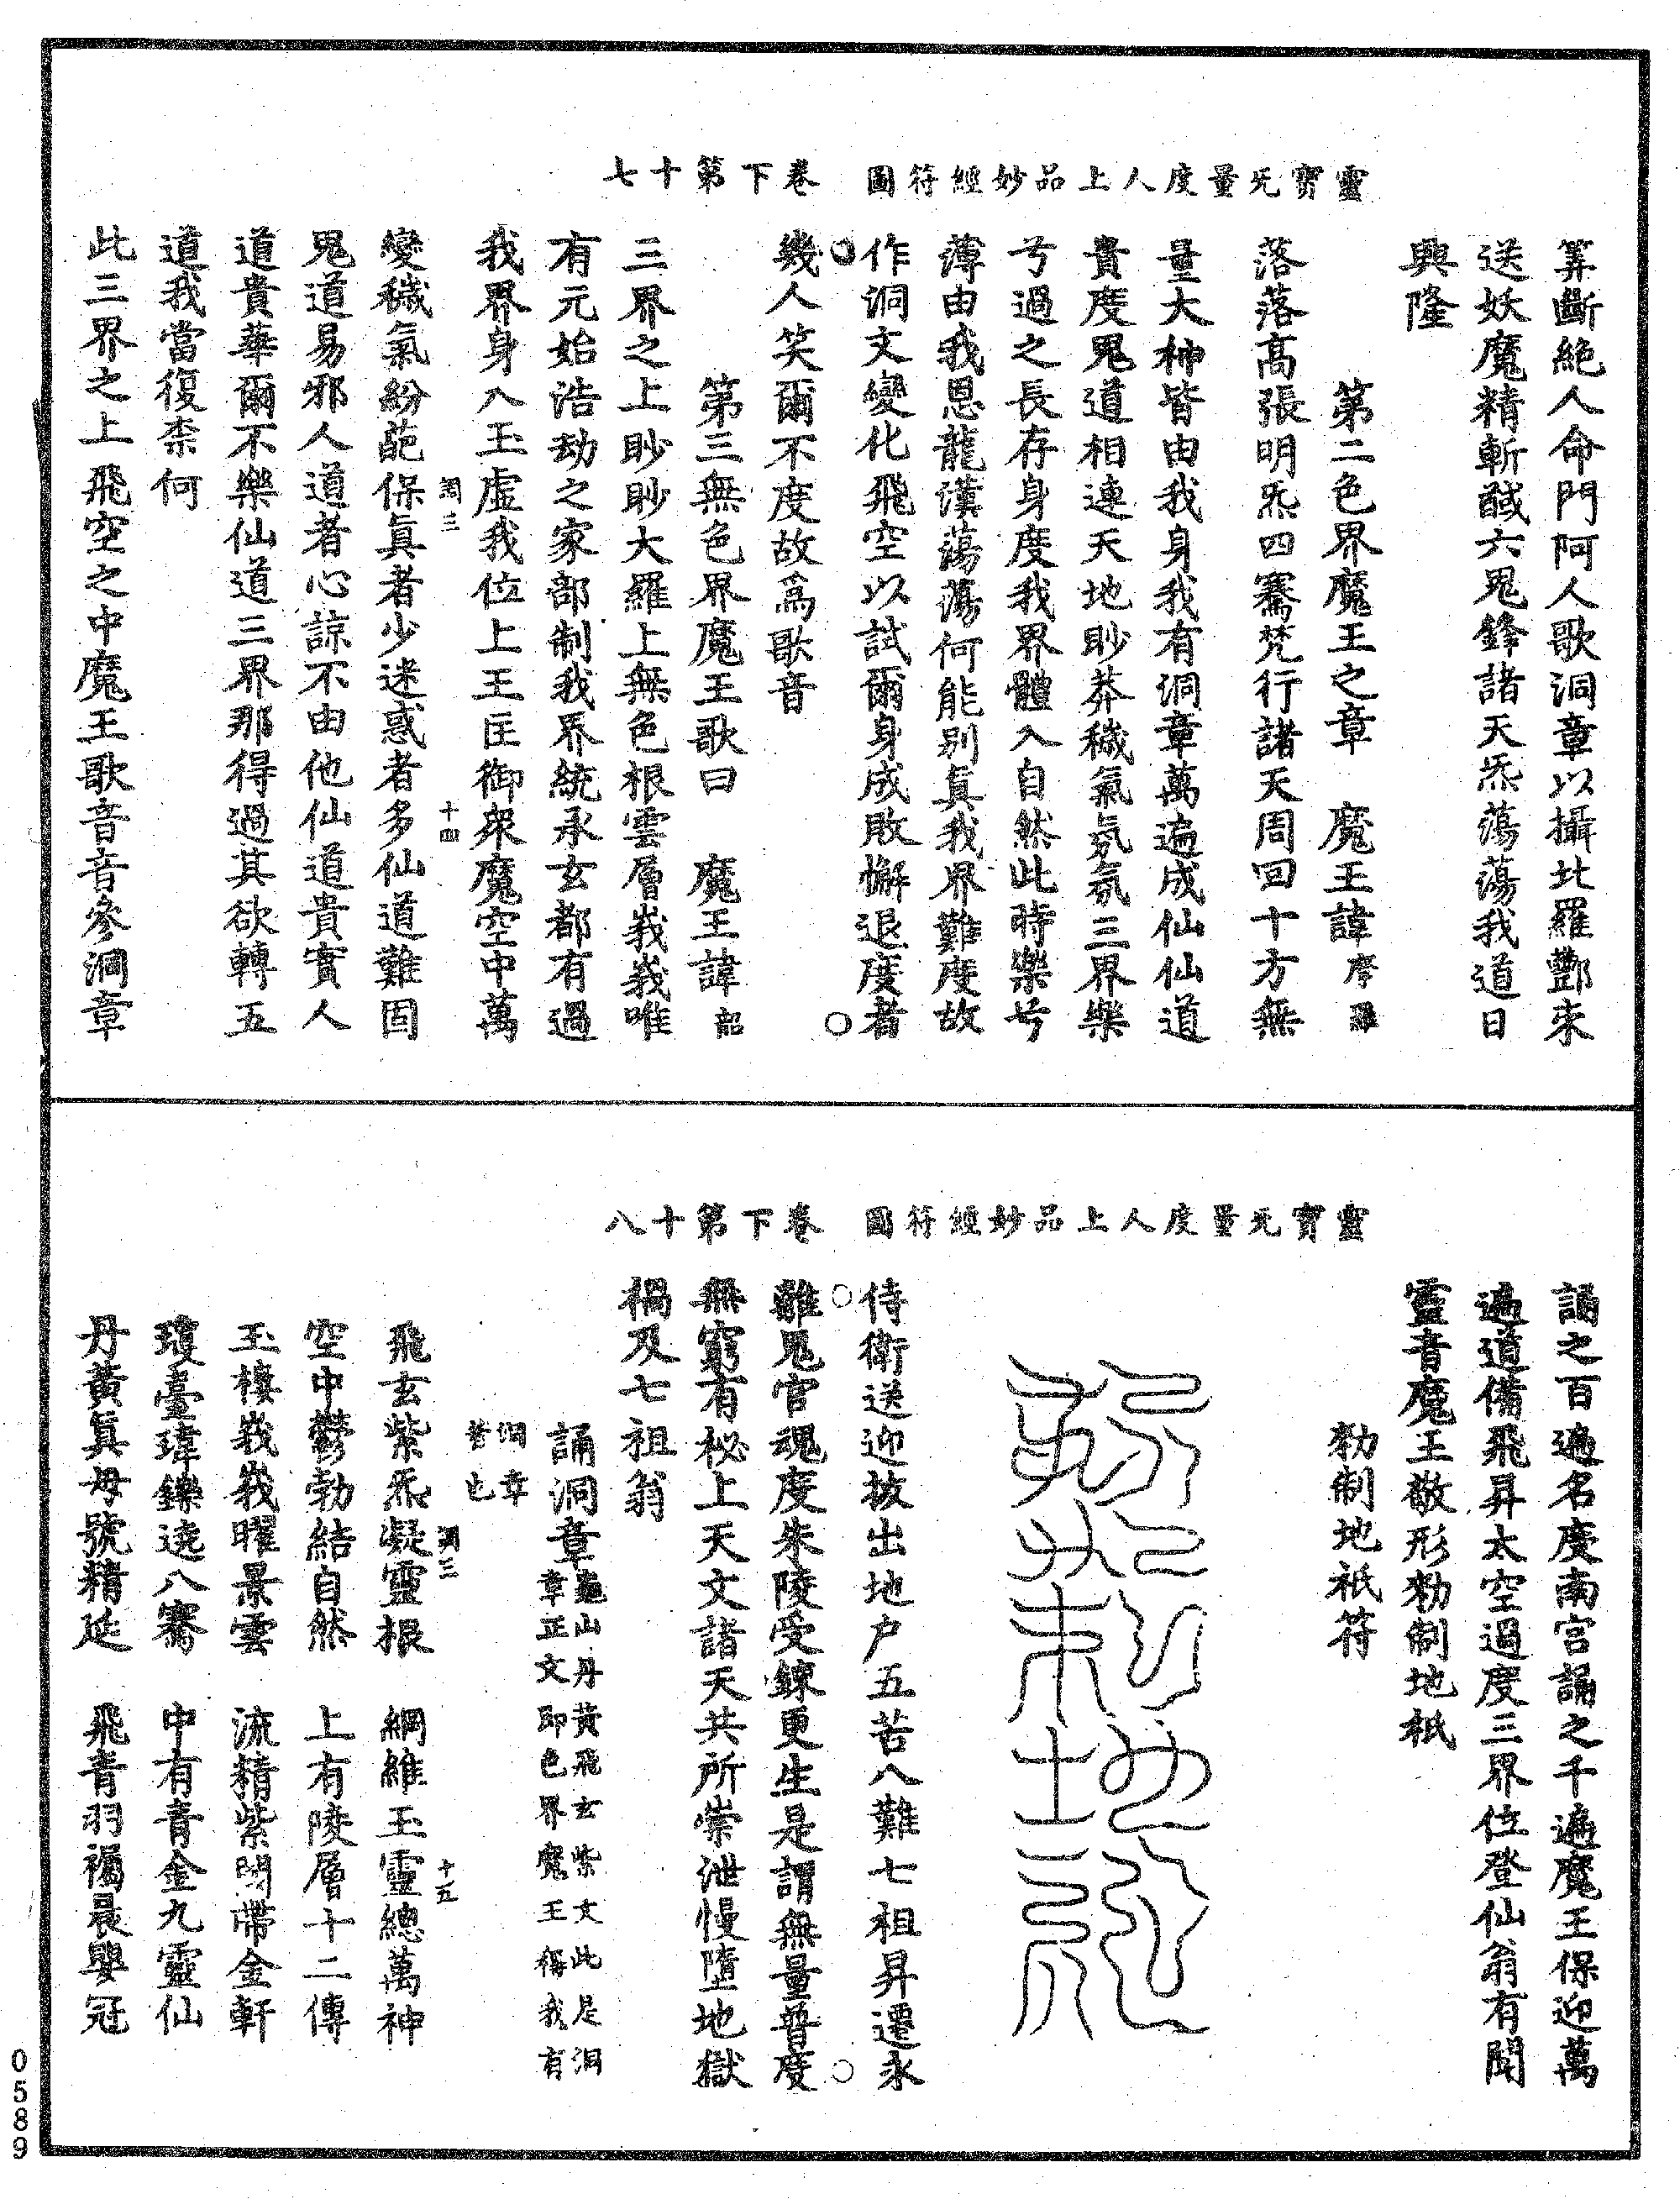 靈寶旡量度人上品妙經符圖　卷下第十七
筭斷絶人命門阿人歌洞章以攝北羅酆束
送妖魔精斬馘六鬼鋒諸天炁蕩蕩我道日
興隆
第二色界魔王之章　魔王諱摩羅
落落高張明炁四騫梵行諸天周回十方無
量大神皆由我身我有洞章萬遍成仙仙道
貴度鬼道相連天地眇莽穢氣氛氛三界樂
兮過之長存身度我界體入自然此時樂兮
薄由我恩龍漢蕩蕩何能別真我界難度故
作洞文變化飛空以試爾身成敗懈退度者
幾人笑爾不度故爲歌音
第三無色界魔王歌曰　魔王諱韶
三界之上眇眇大羅上無色根雲層峩峩唯
有元始浩劫之家部制我界統承玄都有過
我界身入玉虛我位上王匡御衆魔空中萬
洞三　十四
變穢氣紛葩保真者少迷惑者多仙道難固
鬼道易邪人道者心諒不由他仙道貴實人
道貴華爾不樂仙道三界那得過其欲轉五
道我當復柰何
此三界之上飛空之中魔王歌音音參洞章
靈寶旡量度人上品妙經符圖　卷下第十八
誦之百遍名度南宮誦之千遍魔王保迎萬
遍道備飛昇太空過度三界位登仙翁有聞
靈音魔王敬形勑制地祇
勑制地祇符
侍衛送迎拔出地户五苦八難七祖昇遷永
離鬼官魂度朱陵受鍊更生是謂無量普度
無窮有秘上天文諸天共所崇泄慢墮地獄
禍及七祖翁
誦洞章龜山丹黃飛玄紫文此是洞
章正文即色界魔王稱我有
洞章
者也
洞三　十五
飛玄紫炁凝靈根　綱維玉靈總萬神
空中鬱勃結自然　上有陵層十二傳
玉樓峩峩曜景雲　流精紫閣帶金軒
瓊臺瑋鑠遶八騫　中有青金九靈仙
丹黃真母號精延　飛青羽褐晨嬰冠
0589